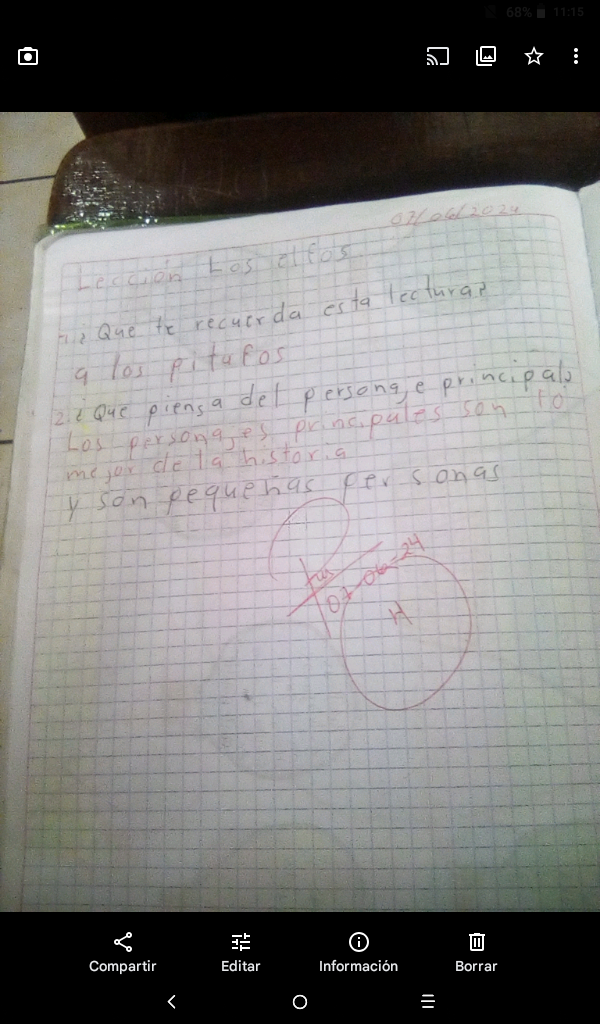 68% 11:15
07/06/2024
Lección Los elfos
1.¿Que te recuerda esta lectura?
a los pitufos
2.¿Que piensa del personaje principal?
Los personajes principales son lo
mejor de la historia
y son pequeñas personas
07-06-24
H
Compartir Editar Información Borrar